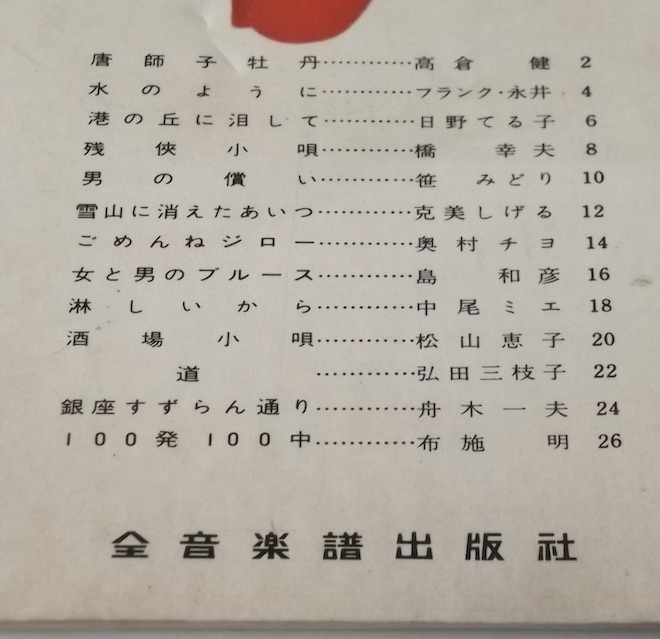 唐師子牡丹…………高倉健 2
水のように…………フランク・永井 4
港の丘に泪して…………日野てる子 6
残俠小唄…………橋幸夫 8
男の償い…………笹みどり 10
雪山に消えたあいつ…………克美しげる 12
ごめんねジロー…………奥村チヨ 14
女と男のブルース…………島和彦 16
淋しいから…………中尾ミエ 18
酒場小唄…………松山恵子 20
道…………弘田三枝子 22
銀座すずらん通り…………舟木一夫 24
100発100中…………布施明 26
全音楽譜出版社